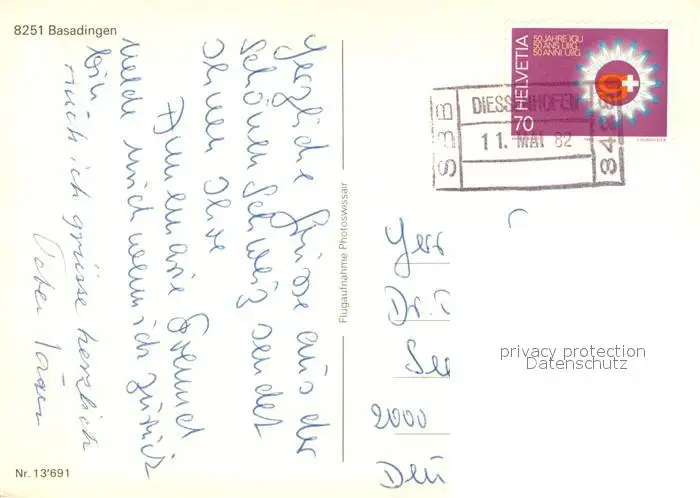 8251 Basadingen
Herzliche Grüsse aus der
schönen Schweiz sendet
Ihnen Ihre
Annemarie Freund
melde mich wenn ich zurück
bin
Auch ich grüsse herzlich
Nr. 13'691
Flugaufnahme Photoswissair
HELVETIA
50 JAHRE IGU
50 ANS UIIG
50 ANNI UIIG
70
SBB
DIESSENHOFEN
11. MAI 82
Herr
Dr.
2000
privacy protection
Datenschutz